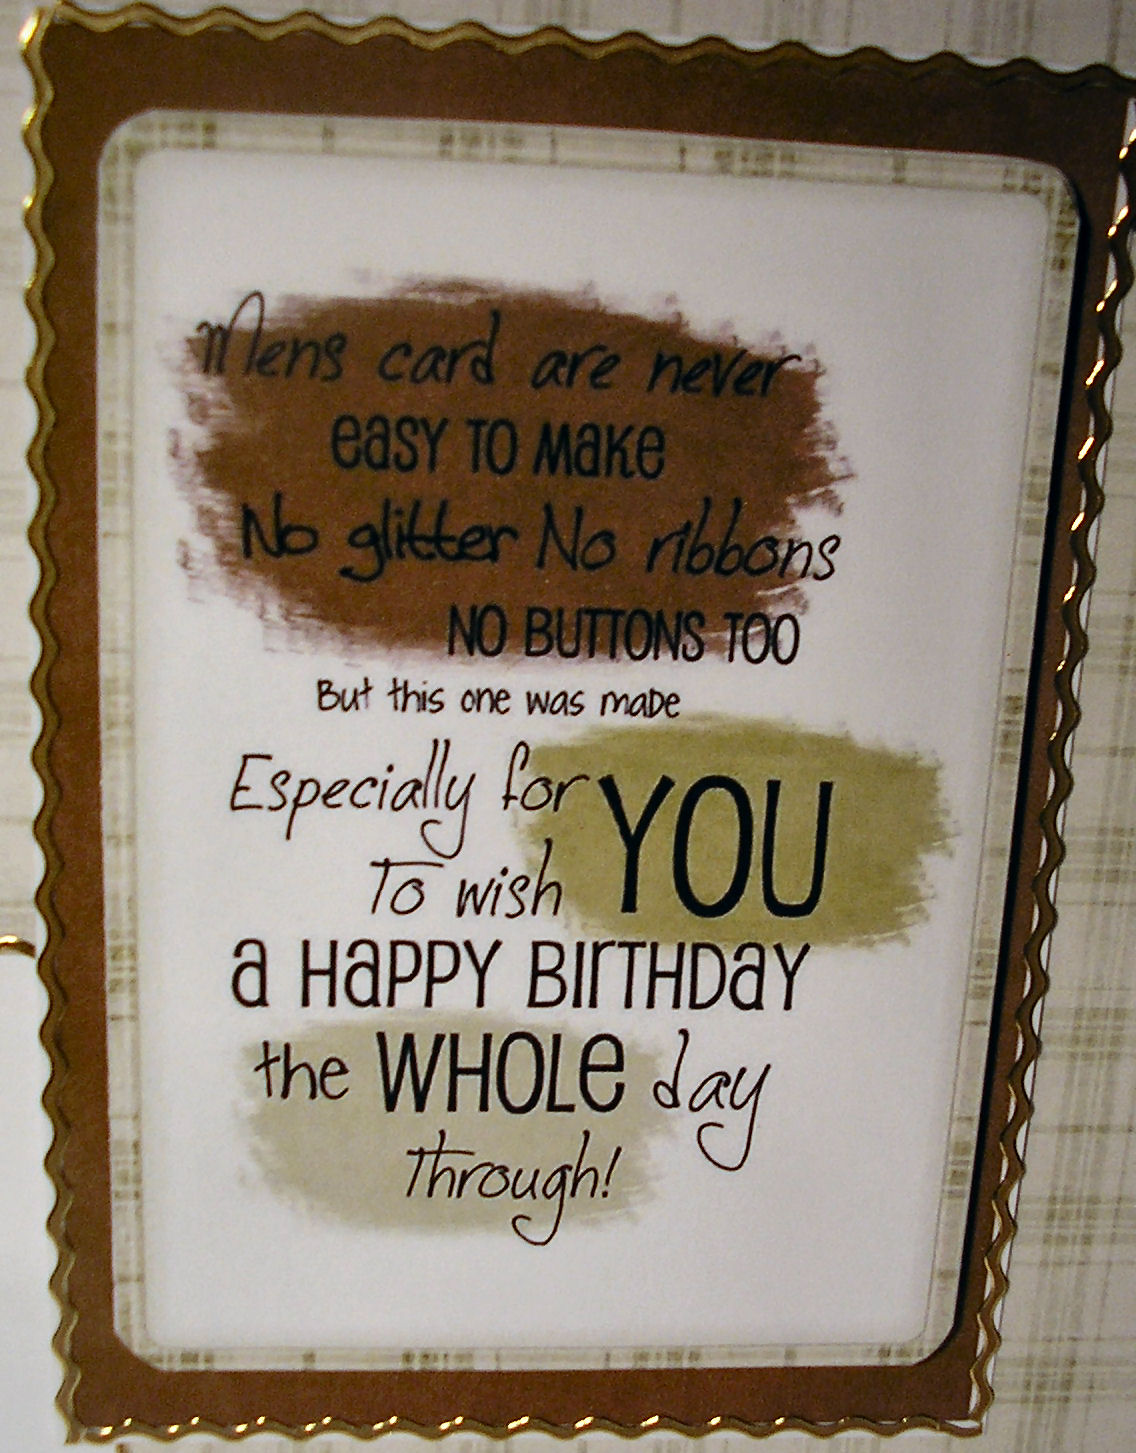 Mens card are never
easy to make
No glitter No ribbons
NO BUTTONS TOO
But this one was made
Especially for YOU
To wish
a Happy Birthday
the WHOLe day
Through!